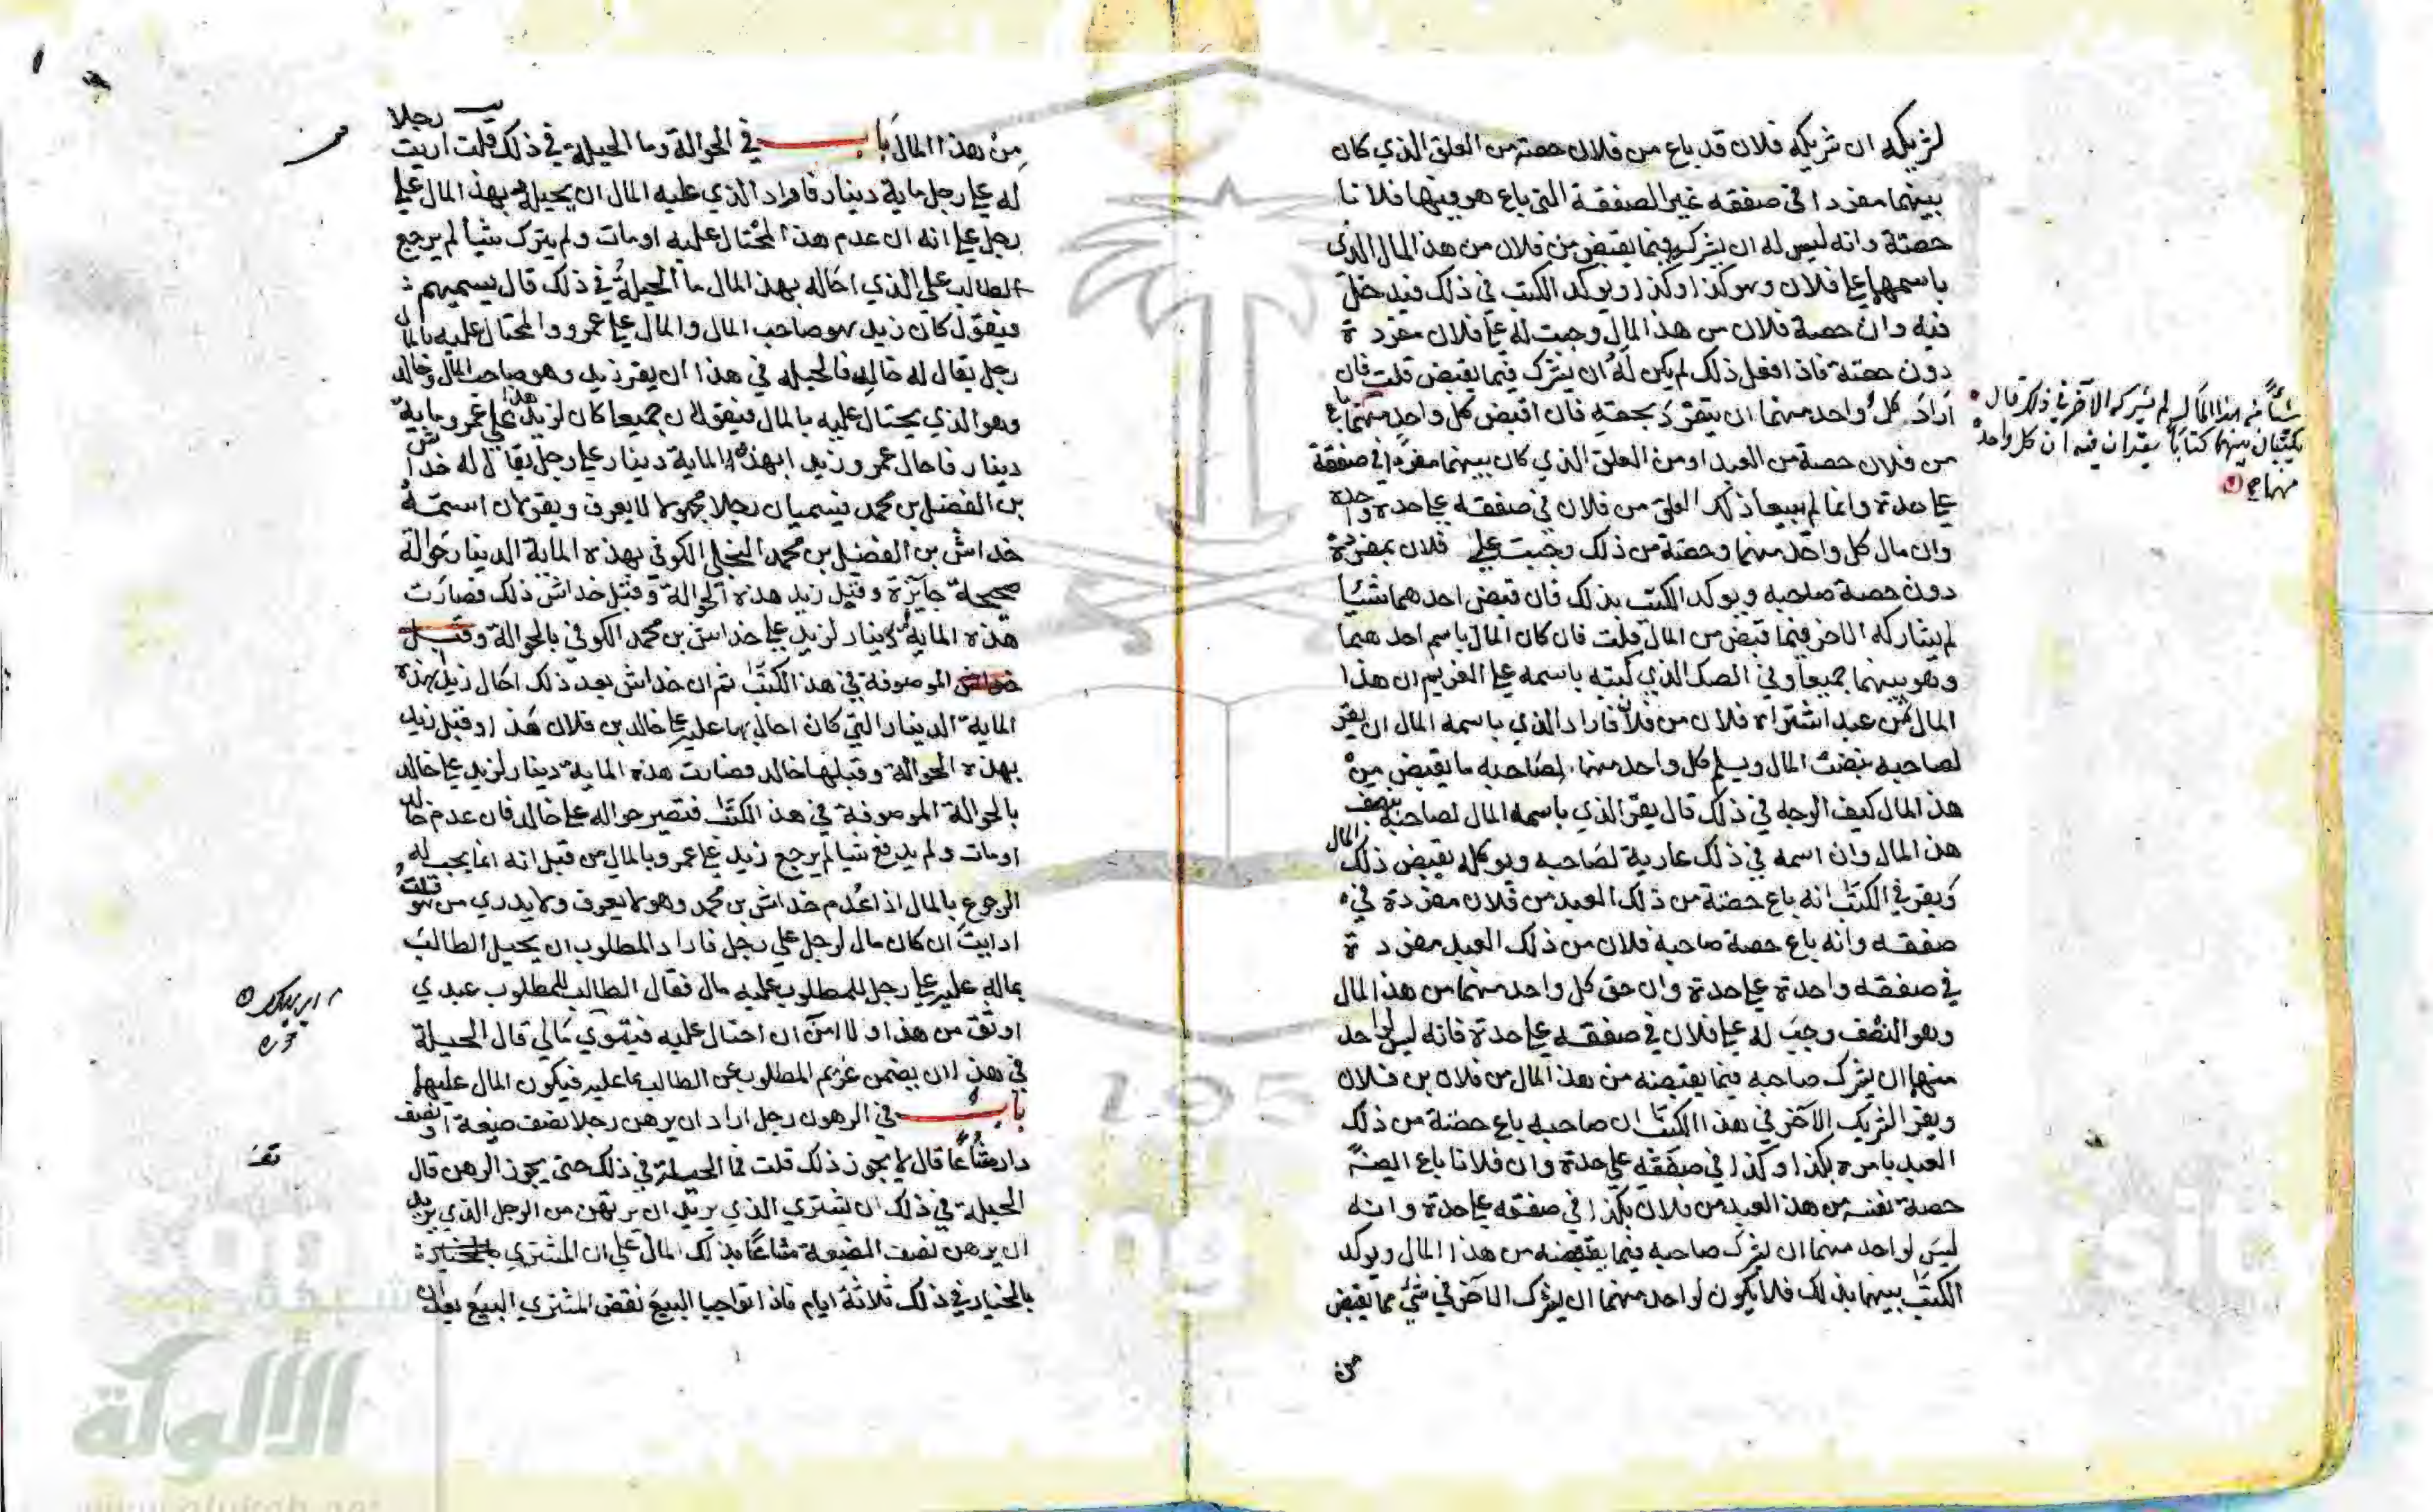 لشريكه ان شريكه فلان قد باع من فلان حصته من العلق الذي كان
بينهما مفردا في صفقه غير الصفقة التي باع هو فيها فلانا
حصتة وانه ليس له ان يشركه فيما يقبض من فلان من هذ المال الذي
باسمها علي فلان وهو كذا وكذا ويوكد الكتب في ذلك فيد خل
فيه وان حصة فلان من هذ المال وجبت له علي فلان مفرد ة
دون حصتة فاذا فعل ذلك لم يكن له ان يشرك فيما يقبض قلت فان
اراد كل واحد منهما ان يتفرد بحصته فان اقبض كل واحد منهما باع
من فلان حصة من العبد او من العلق الذي كان بينهما مفردا في صفقة
علي حدة وانما لم يبيعا ذلك العلق من فلان في صفقه علي حدة واحدة
وان مال كل واحد منهما وحصتة من ذلك وجبت علي فلان بمفردة
دون حصة صاحبه ويوكد الكتب بذلك فان قبض احدهما شيئا
لم يشاركه الاخر فيما قبض من المال قلت فان كان المال باسم احد هما
وهو بينهما جميعا وفي الصك الذي كتبه باسمه علي الغريم ان هذا
المال ثمن عبد اشتراه فلان من فلان فاراد الذي باسمه المال ان يقر
لصاحبه بنصف المال ويسلم كل واحد منهما لصاحبه ما يقبض من
هذ المال كيف الوجه في ذلك قال يقر الذي باسمه المال لصاحبه بنصف
هذ المال وان اسمه في ذلك عارية لصاحبه ويوكله بقبض ذلك المال
ويقر في الكتب انه باع حصته من ذلك العبد من فلان مفردة في
صفقه وانه باع حصة صاحبه فلان من ذلك العبد مفرد ة
في صفقه واحدة علي حدة وان حق كل واحد منهما من هذ المال
وهو النصف وجب له علي فلان في صفقه علي حدة فانه ليس لواحد
منهما ان يشرك صاحبه فيما يقبضه من هذ المال من فلان بن فلان
ويقر الشريك الآخر في هذ االكتب ان صاحبه باع حصتة من ذلك
العبد بامره بكذا وكذا في صفقه علي حدة وان فلانا باع ايضا
حصة نفسه من هذ العبد من فلان بكذا في صفقه علي حدة وانه
ليس لواحد منهما ان يشرك صاحبه فيما يقبضه من هذا المال ويوكد
الكتب بينهما بذلك فلا يكون لواحد منهما ان يشرك الاخر في شي مما يقبض
من
شيأ من هذا المال لم يشركه الآخر في ذلك قال
يكتبان بينهما كتابا يقران فيه ان كل واحد
منهما صح
من هذا المال باب في الحوالة وما الحيلة في ذلك قلت اريت رجلا
له علي رجل ماية دينار فاراد الذي عليه المال ان يحيله بهذ المال علي
رجل علي انه ان عدم هذ المحتال عليه او مات ولم يترك شيأ لم يرجع
الطالب علي الذي احاله بهذ المال ما الحيلة في ذلك قال يسميهم
فيقول كان زيد هو صاحب المال والمال علي عمرو والمحتال عليه بالمال
رجل يقال له خالد فالحيله في هذا ان يقر زيد وهو صاحب المال وخالد
وهو الذي يحتال عليه بالمال فيقولان جميعا كان لزيد هذا علي عمرو ماية
دينار فاحال عمرو زيد ابهذه الماية دينار علي رجل يقال له خداش
بن الفضل بن محمد فيسميان رجلا مجهولا لا يعرف ويقولان اسمه
خداش بن الفضل بن محمد النخلي الكوفي بهذه الماية الدينار حوالة
صحيحة جايزة وقبل زيد هذه الحوالة وقبل خداش ذلك فصارت
هذه الماية دينار لزيد علي خداش بن محمد الكوفي بالحوالة وقبل
خداش الموصوفة في هذ الكتب ثم ان خداش بعد ذلك احال زيد بهذه
الماية الدينار التي كان احال بها عليه علي خالد بن فلان هذ ا وقبل زيد
بهذه الحوالة وقبلها خالد فصارت هذه الماية دينار لزيد علي خالد
بالحوالة الموصوفة في هذ الكتب فتصير حواله علي خالد فان عدم خالد
او مات ولم يدع شيا لم يرجع زيد علي عمرو بالمال من قبل انه انما يجب له
الرجوع بالمال اذا عدم خداش بن محمد وهو لا يعرف ولا يدري من هو قلت
ارايت ان كان مال لرجل علي رجل فاراد المطلوب ان يحيل الطالب
بماله عليه علي رجل للمطلوب عليه مال فقال الطالب للمطلوب عبدي
اوثق من هذا و لا امن ان احتال عليه فيتوي مالي قال الحيلة
في هذ ا ان يضمن غريم المطلوب عن الطالب ما عليه فيكون المال عليهما
باب في الرهون رجل اراد ان يرهن رجلا نصف ضيعة او نصف
دار مشاعا قال لا يجوز ذلك قلت فما الحيلة في ذلك حتى يجوز الرهن قال
الحيلة في ذلك ان يشتري الذي يريد ان يرتهن من الرجل الذي يريد
ان يرهن نصف الضيعة مشاعا بذلك المال علي ان المشتري
بالخيار في ذلك ثلاثة ايام فاذا تواجبا البيع نقض المشتري البيع